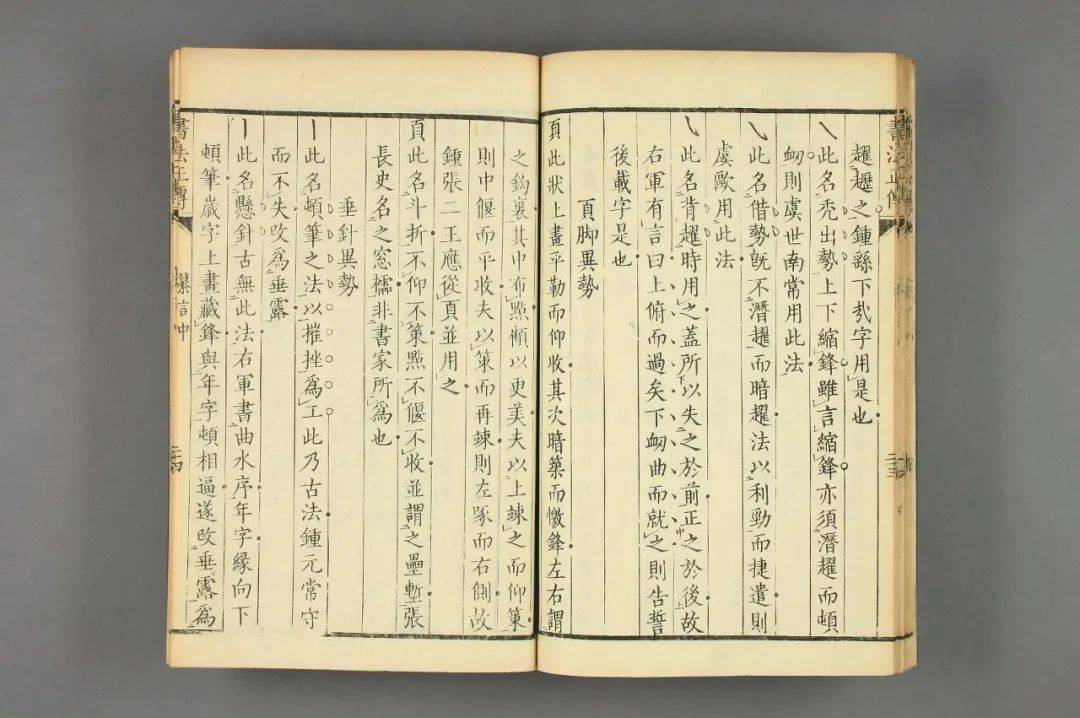 趯𧾷之鍾繇下㢤字用是也
㇏此名禿出勢上下縮鋒雖言縮鋒亦須潛趯而頓
衂則虞世南常用此法
㇏此名借勢旣不潛趯而暗趯法以利勁而捷遣則
虞歐用此法
㇏此名背趯時用之蓋所以失之於前正之於後故
右軍有言曰上俯而過矣下衂曲而就之則告誓
後載字是也
頁脚異勢
頁此狀上畫平勒而仰收其次暗築而憿鋒左右謂
之鈎裏其中布點顧以更美夫以上竦之而仰策
則中偃而平收夫以策而再竦則左啄而右側故
鍾張二王應從頁並用之
頁此名斗折不仰不策㸃不偃不收並謂之壘塹張
長史名之窓櫺非書家所爲也
垂針異勢
丨此名頓筆之法以摧挫爲工此乃古法鍾元常守
而不失改爲垂露
丨此名懸針古無此法右軍書曲水序年字緣向下
頓筆嵗字上畫藏鋒與年字頓相逼遂改垂露爲
書法正傳
纂言中
二十四